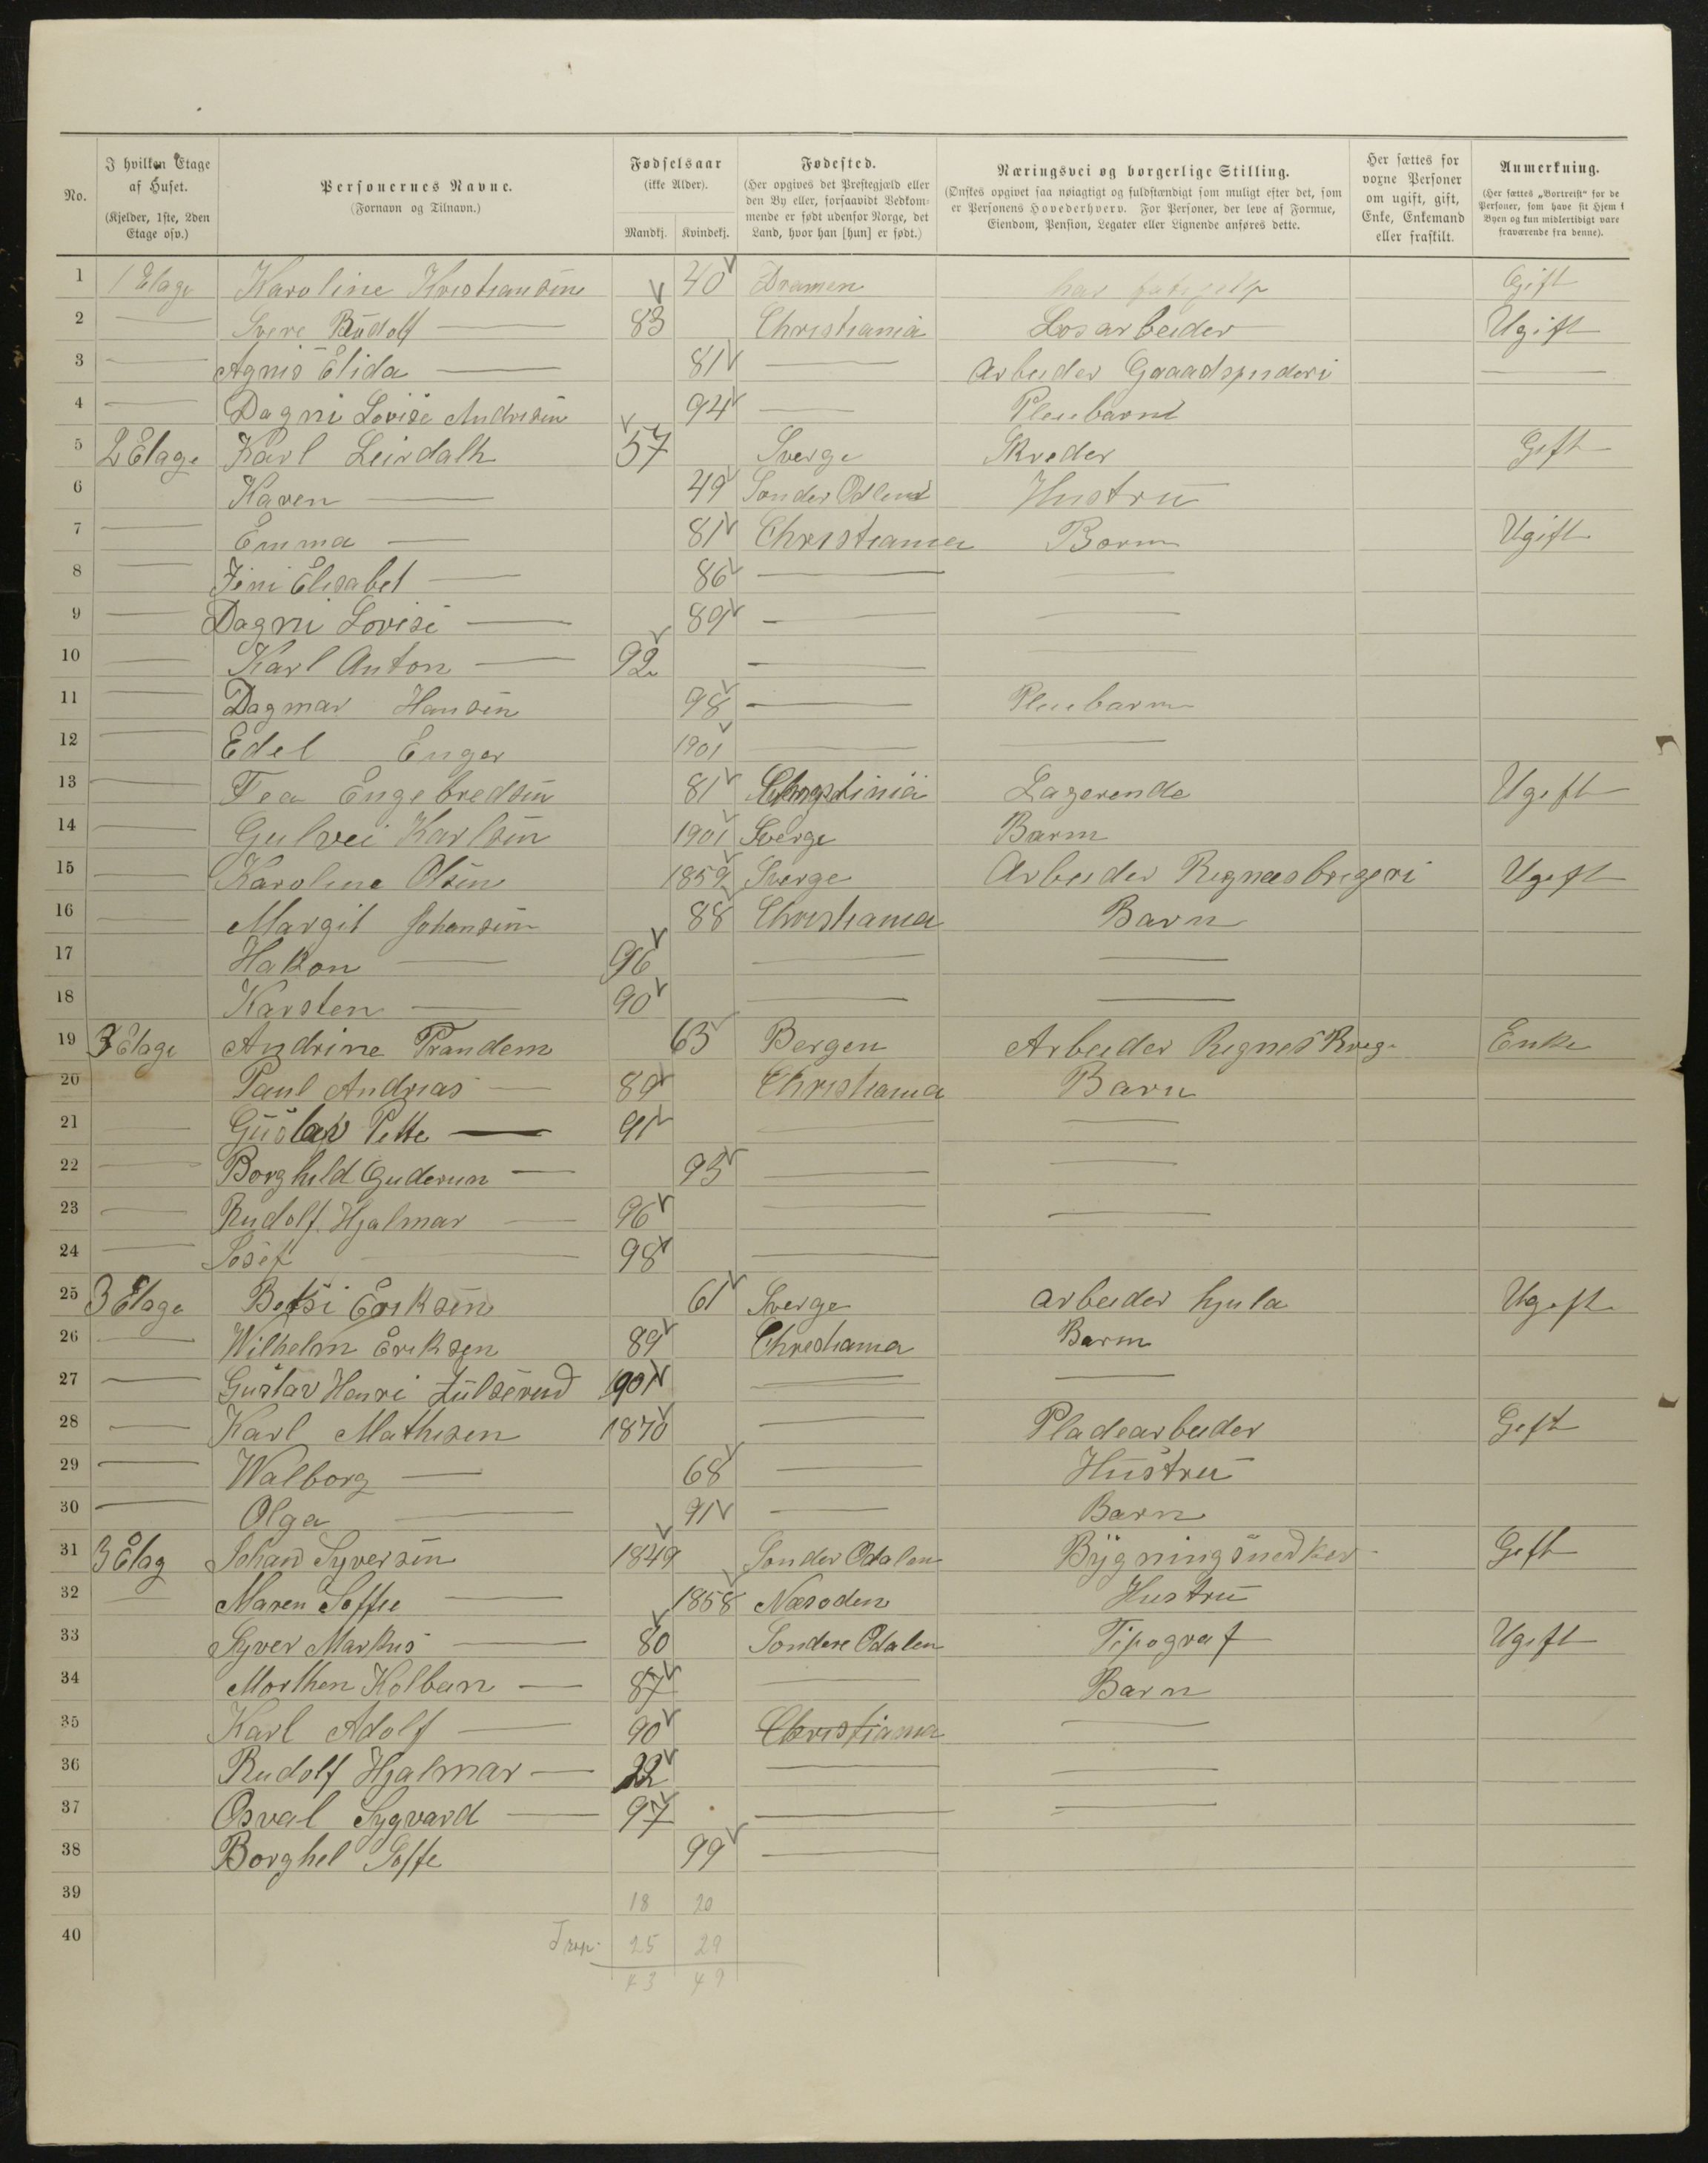 No. I hvilken Etage af Huset. (Kjelder, 1ste, 2den Etage osv.) Personernes Navne. (Fornavn og Tilnavn.) Fødselsaar (ikke Alder). Mandkj. Kvindekj. Fødested. (Her opgives det Prestegjæld eller den By eller, forsaavidt Vedkommende er født udenfor Norge, det Land, hvor han [hun] er født.) Næringsvei og borgerlige Stilling. (Ønskes opgivet saa nøiagtigt og fuldstændigt som muligt efter det, som er Personens Hovederhverv. For Personer, der leve af Formue, Eiendom, Pension, Legater eller Lignende anføres dette. Her sættes for voxne Personer om ugift, gift, Enke, Enkemand eller fraskilt. Anmerkning. (Her sættes „Bortreist“ for de Personer, som have sit Hjem i Byen og kun midlertidigt vare fraværende fra denne).
1 1 Etage Karoline Kristiansen 40 Dramen har Gift
2 — Svere Rudolf — 83 Christiania Losarbeider Ugift
3 — Agnis Elida — 81 — Arbeider Gaaadspinderi —
4 — Dagni Lovise Andresen 94 — Pleiebarnd
5 2 Etage Karl Leirdalh 57 Sverge Skreder Gift
6 Karen — 49 Sonder Odlend Hustru
7 — Emma — 81 Christiania Barn Ugift
8 — Jeni Elisabet — 86 — —
9 — Dagni Lovise — 89 — —
10 — Karl Anton — 92 — —
11 — Dagmar Hansen 98 — Pleiebarn
12 — Edel Enger 1901 — —
13 — Tea Engebredsen 81 Lagerende Ugift
14 — Gulvei Karlsen 1901 Sverge Barn
15 — Karoline Olsen 1859 Sverge Arbeider Ugift
16 — Margit Johansen 88 Christiania Barn
17 Hakon — 96 — —
18 Karsten — 90 — —
19 3 Etage Andrine Prandem 63 Bergen Arbeider Enke
20 Paul Andrias — 89 Christiania Barn
21 — Gustav Pette — 91 — —
22 — Borghild Guderun — 95 — —
23 — Rudolf Hjalmar — 96 — —
24 — Josef — 98 —
25 3 Etage Betsi Eriksen 61 Sverge Arbeider Hjula Ugift
26 — Wilhelm Eriksen 89 Christiania Barn
27 — Gustav Henri 1901 — —
28 — Karl Mathisen 1870 — Pladearbeider Gift
29 — Walborg — 68 — Hustru
30 — Olga — 91 — Barn
31 3 Etag Johan Syversen 1849 Sonder Odalen Bygningsnedker Gift
32 — Maren Soffie — 1858 Næsoden Hustru
33 Syver Markus — 80 Sondere Odalen Tipograf Ugift
34 Morthen Kolban — 87 — Barn
35 Karl Adolf — 90 Christiania —
36 Rudolf Hjalmar — — —
37 Osval Sygvard — 97 — —
38 Borghel Soffe 99 —
39 18 20
40 Trsp. 25 29
43 49